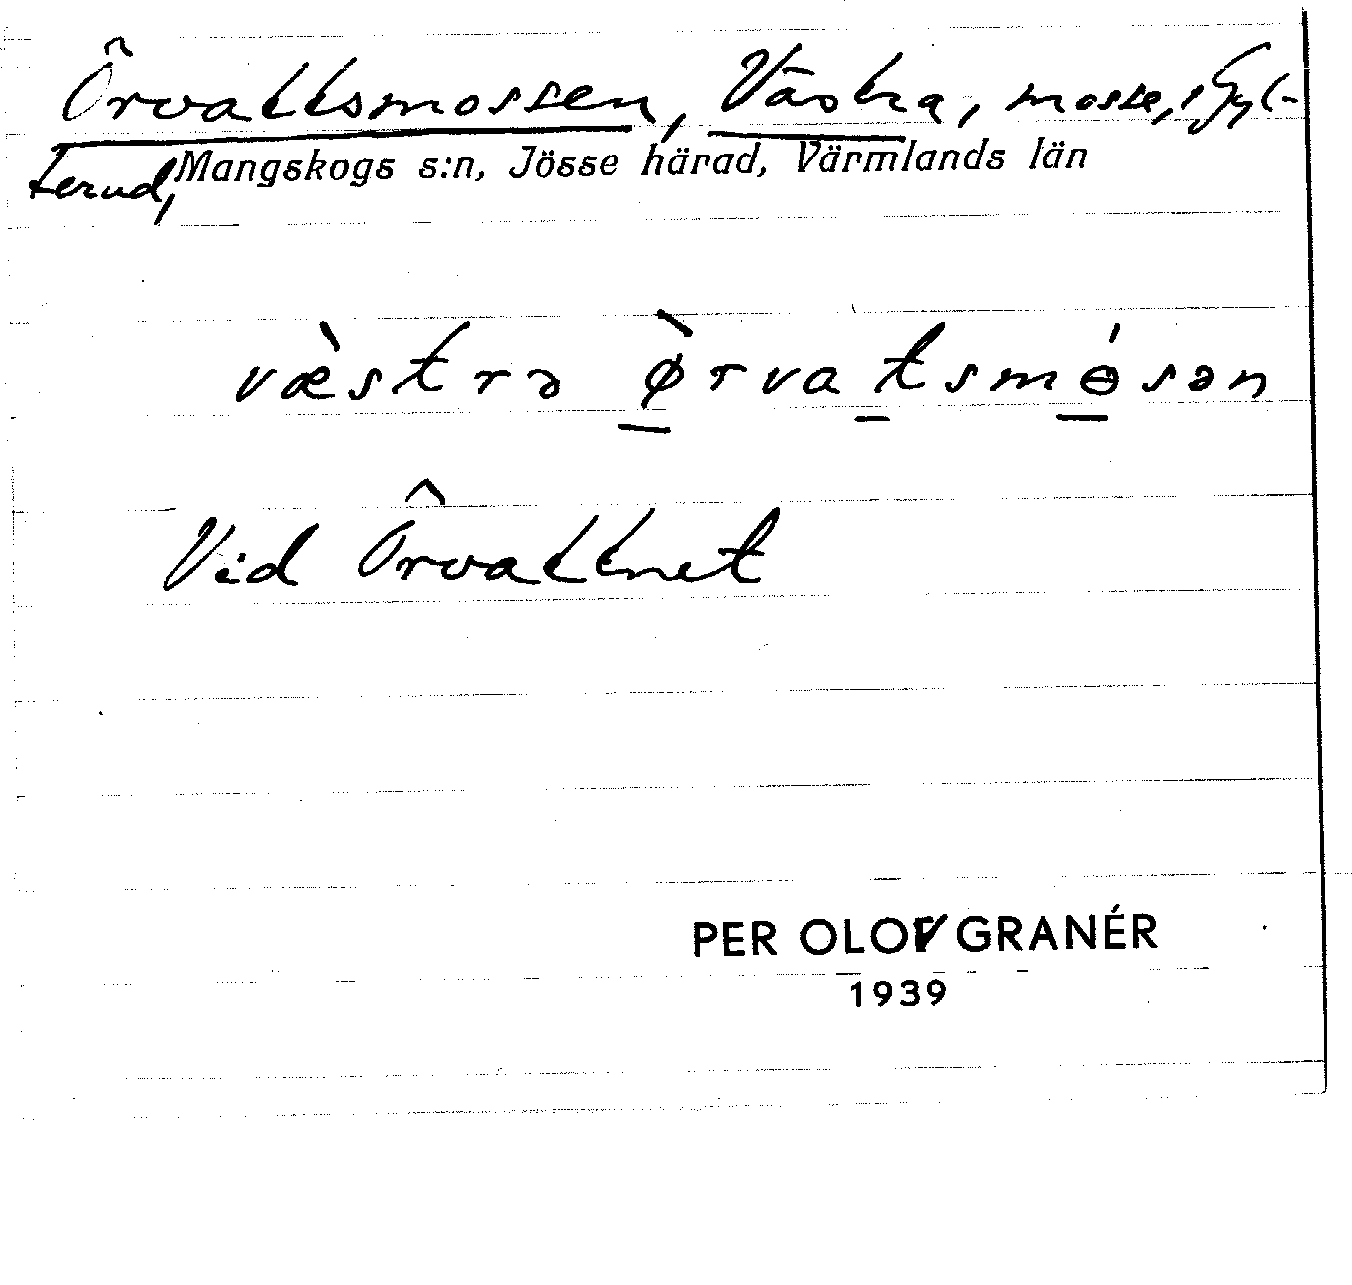 Örvattsmossen, Västra, mosse, i Gyl-
terud, Mangskogs s:n, Jösse härad, Värmlands län
væ̀strə ø̀rvatsmɵ́sən
Vid Örvattnet
PER OLOV GRANÉR
1939